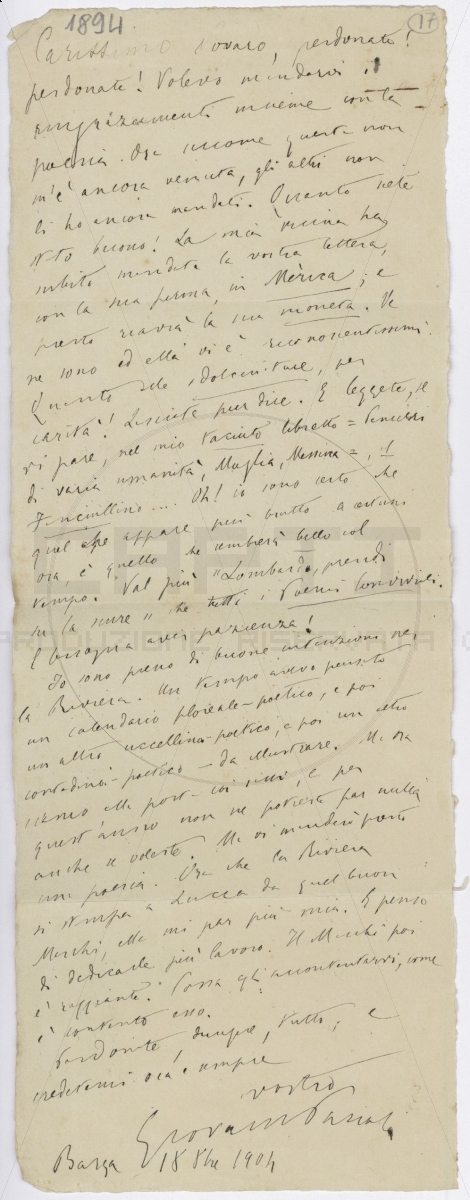 1894
17
Carissimo Novaro, perdonate!
perdonate! Volevo mandarvi i
ringraziamenti insieme con la
poesia. Ora siccome questa non
m'è ancora venuta, gli altri non
li ho ancora mandati. Quanto siete
stato buono! La mia vicina ha
subito mandato la vostra lettera,
con la sua firma, in Mèrica; e
presto riavrà la sua moneta. Ve
ne sono ed ella vi è riconoscentissimi.
Quanto alle sdolcinature, per
carità! Lasciate pur dire. E leggete, se
vi pare, nel mio taciuto libretto = Pensieri
di varia umanità, Muglia, Messina =, il
Fanciullino... Oh! io sono certo che
quel che appare più brutto a certuni
ora, è quello che sembrerà bello col
tempo. Val più "Lombardo, prendi
su la scure" che tutti i Poemi Conviviali.
E bisogna aver pazienza!
Io sono pieno di buone intenzioni per
la Riviera. Un tempo avevo pensato
un calendario floreale-poetico, e poi
un altro uccellino-poetico, e poi un altro
contadino-poetico — da illustrare. Ma ora
siamo alle porte coi sassi, e per
quest'anno non ne potreste far nulla
anche se voleste. Ma vi manderò presto
una poesia. Ora che la Riviera
si stampa a Lucca da quel buon
Marchi, ella mi par più mia. E penso
di dedicarle più lavoro. Il Marchi poi
è raggiante. Possa egli accontentarvi, come
è contento esso.
Perdonate dunque, tutti, e
credetemi ora e sempre
vostro
Giovanni Pascoli
Barga 18 1904